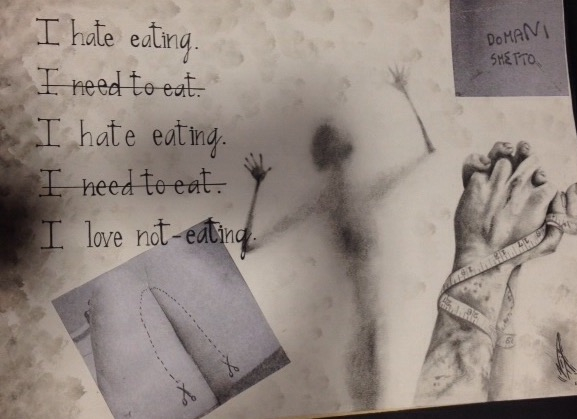 I hate eating.
I need to eat.
I hate eating.
I need to eat.
I love not-eating.
DOMANI
SMETTO